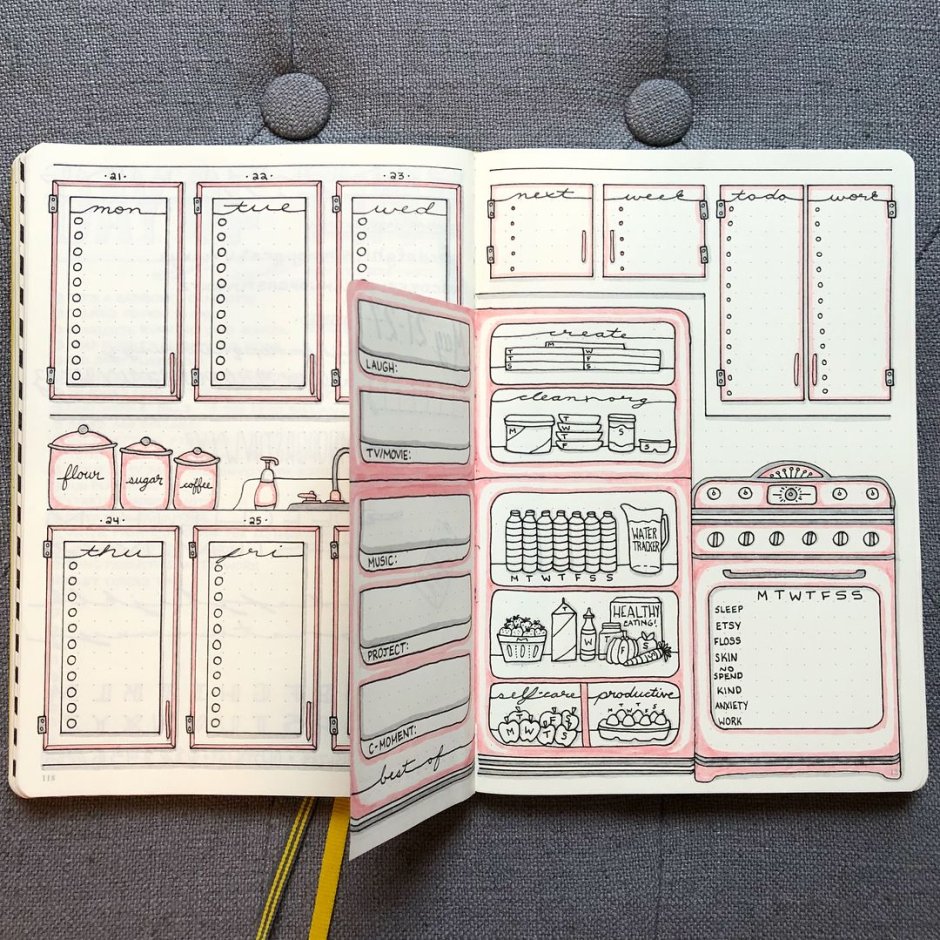 ·21·
·22·
·23·
mon
tue
wed
flour
sugar
coffee
·24·
·25·
thu
fri
118
May 21-27
LAUGH:
TV/MOVIE:
MUSIC:
PROJECT:
C-MOMENT:
best of
next
week
todo
work
create
M
T W
T F
S S
clean+org
M
T
W
T
F
S
S
WATER
TRACKER
M T W T F S S
HEALTHY
EATING!
M
T
W
T
F
S
S
self-care
productive
M T W T F S S
M T W T F S S
M T W T F S S
SLEEP
ETSY
FLOSS
SKIN
NO
SPEND
KIND
ANXIETY
WORK